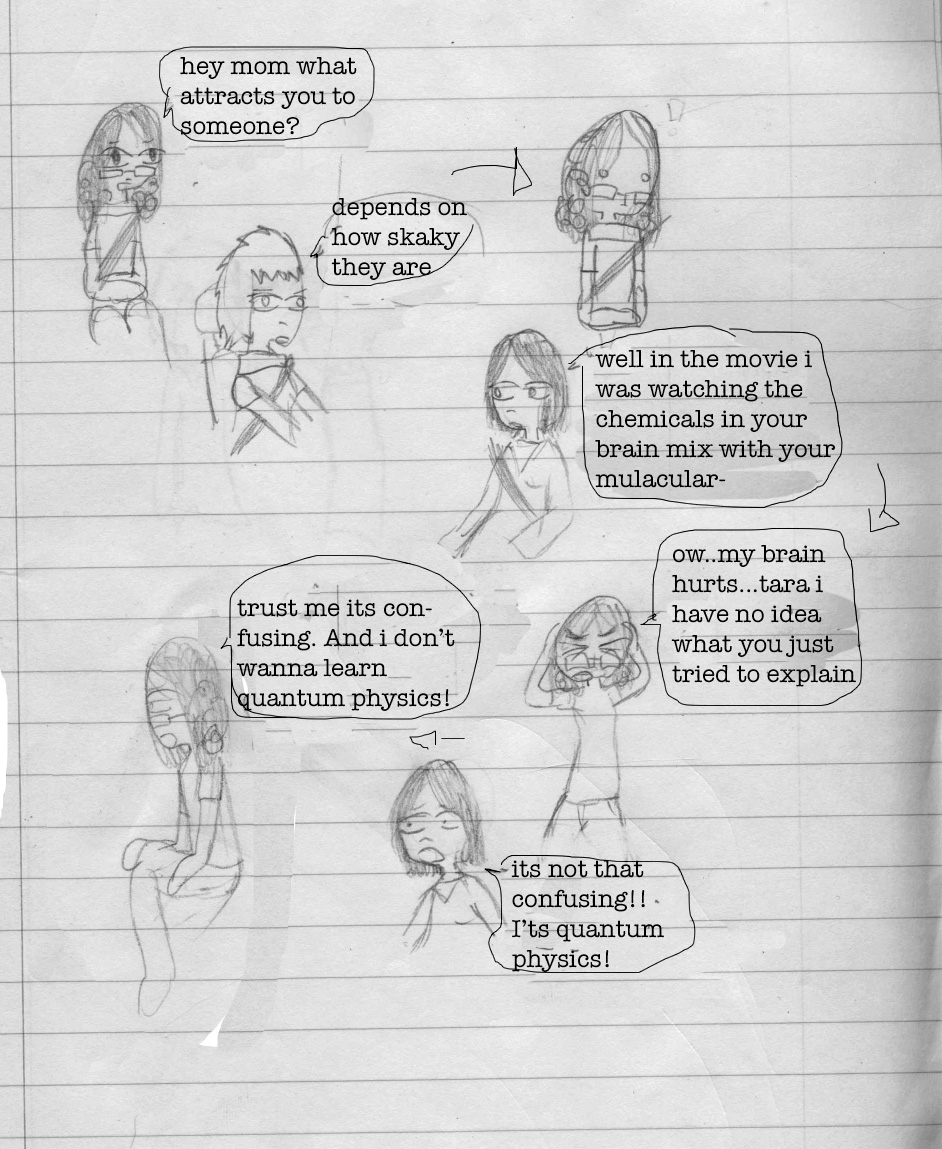 hey mom what
attracts you to
someone?
depends on
how skaky
they are
well in the movie i
was watching the
chemicals in your
brain mix with your
mulacular-
ow..my brain
hurts...tara i
have no idea
what you just
tried to explain
its not that
confusing!!
I'ts quantum
physics!
trust me its con-
fusing. And i don't
wanna learn
quantum physics!